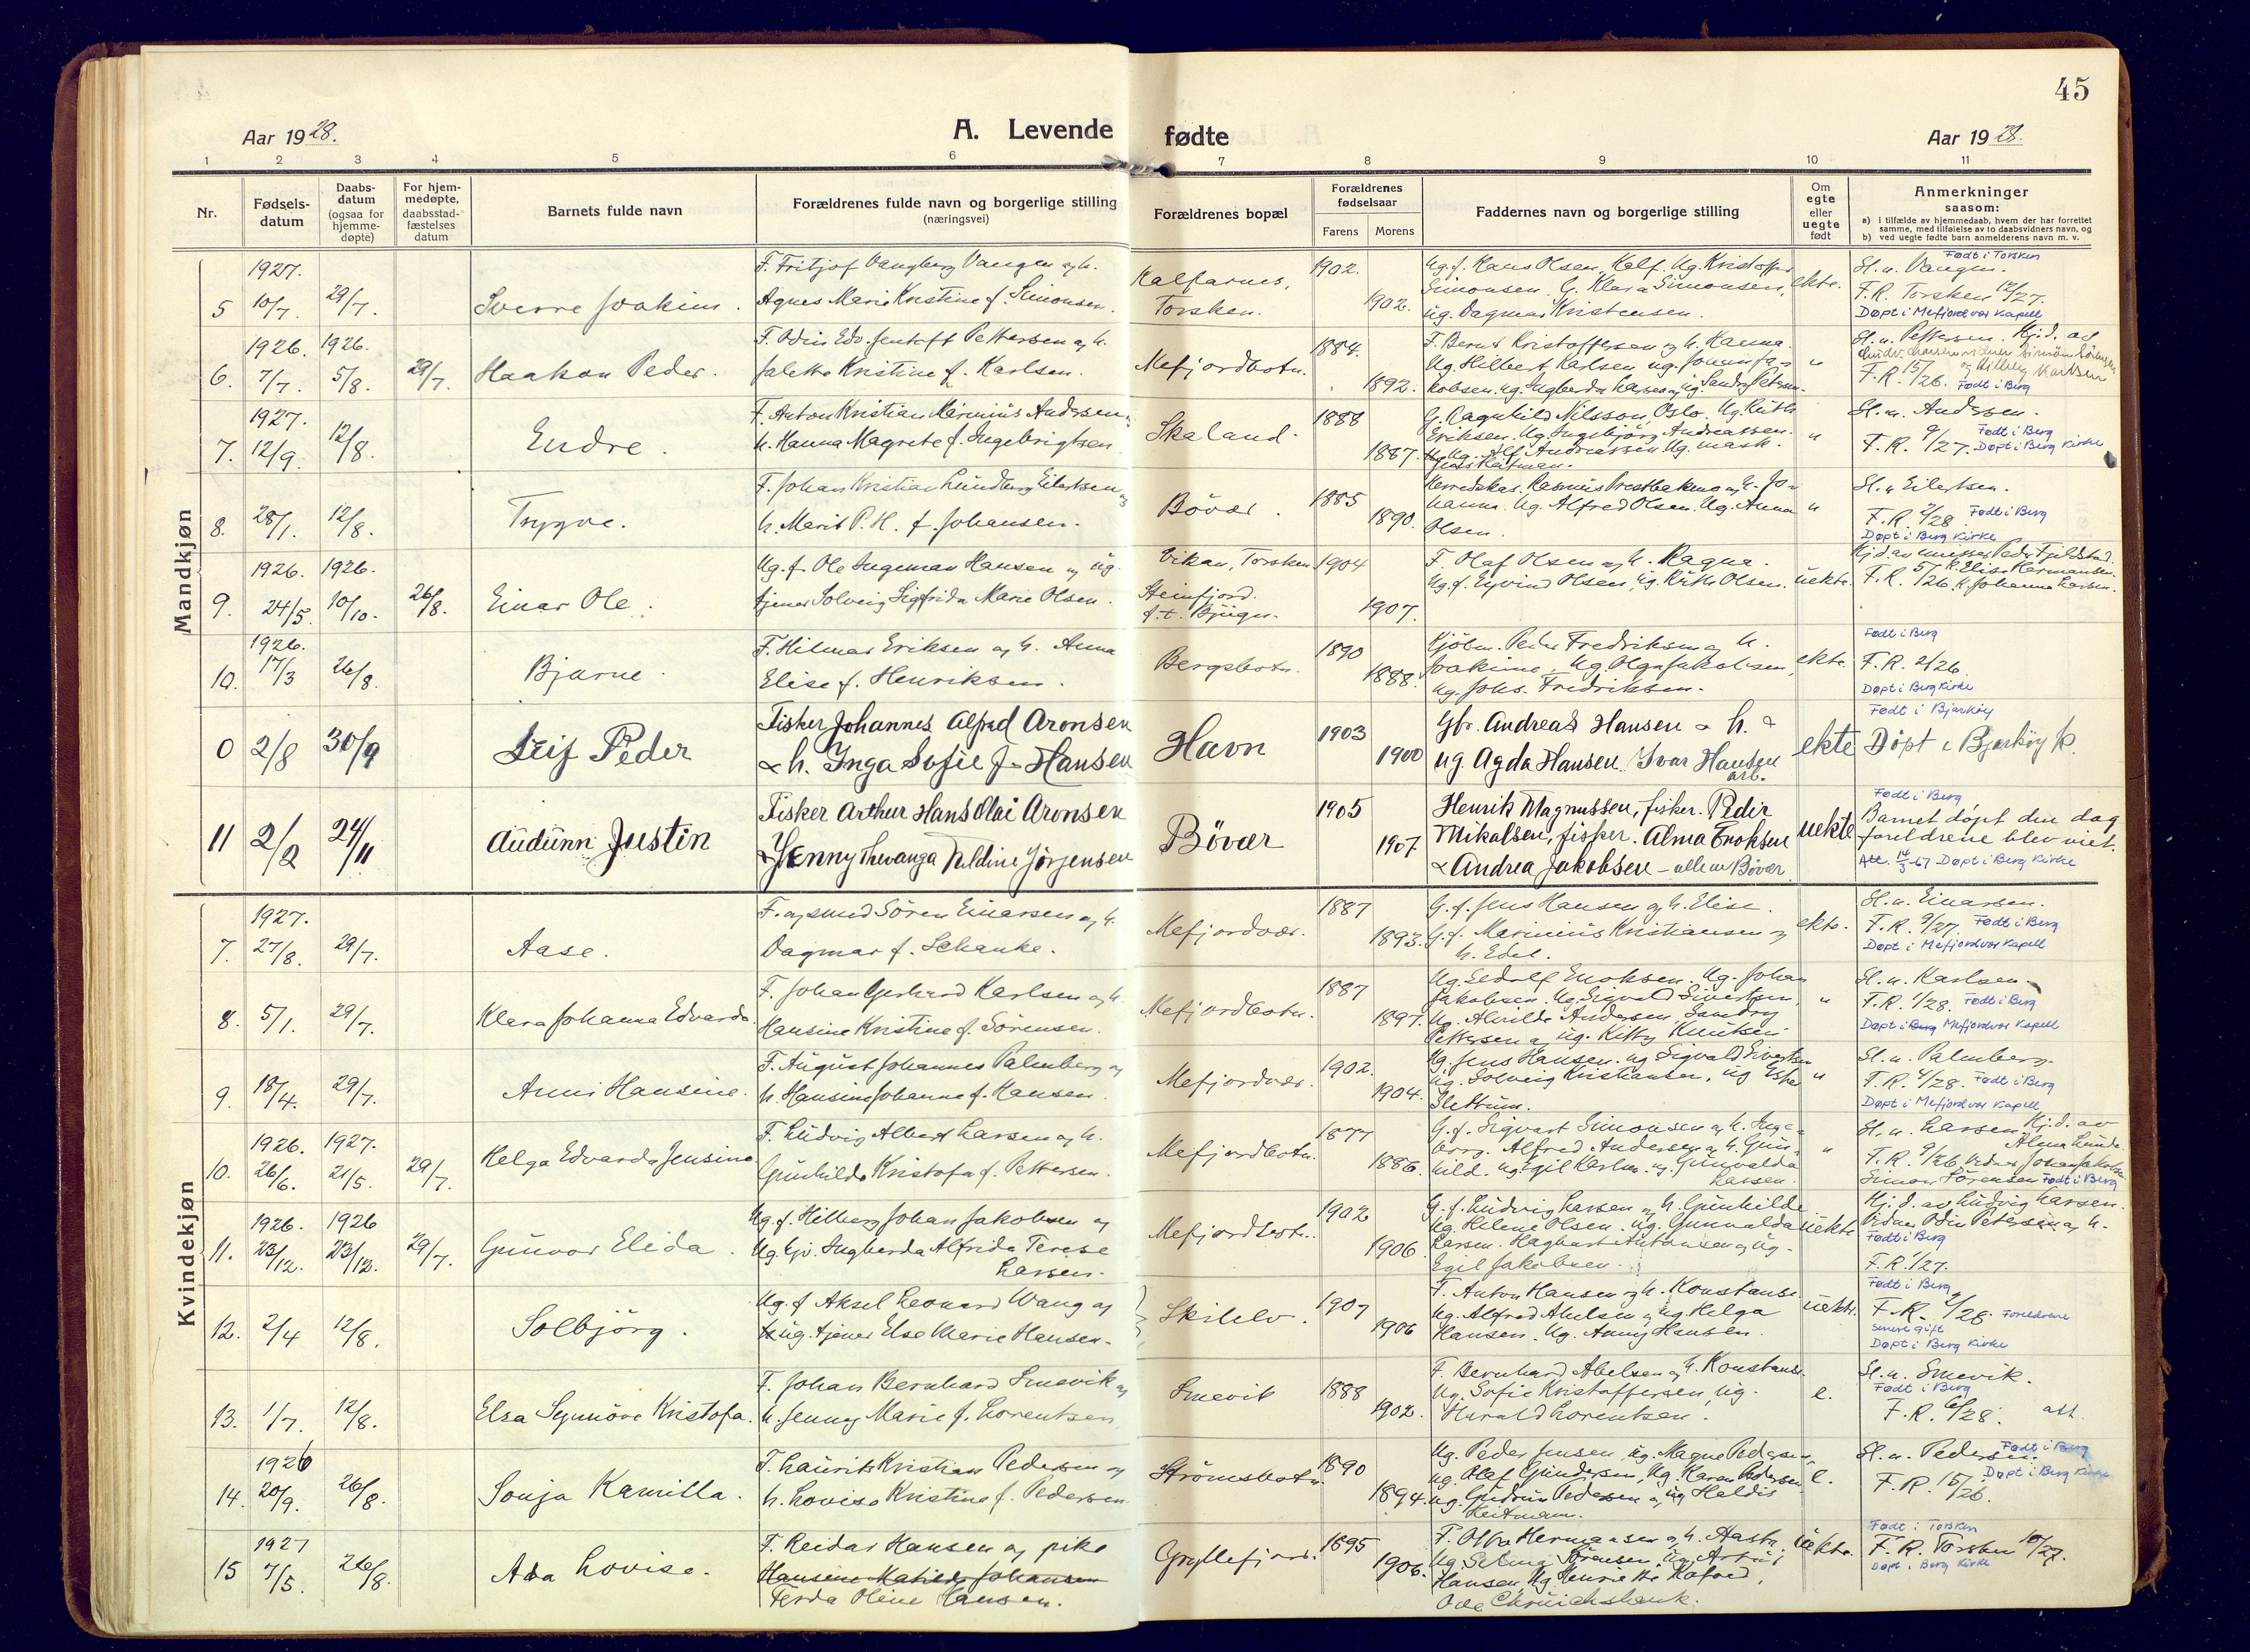 45
Aar 1928.
A. Levende fødte
Aar 1928.
1 2 3 4 5 6 7 8 9 10 11
Nr.
Fødsels-
datum
Daabs-
datum
(ogsaa for
hjemme-
døpte)
For hjem-
medøpte,
daabsstad-
fæstelses
datum
Barnets fulde navn
Forældrenes fulde navn og borgerlige stilling
(næringsvei)
Forældrenes bopæl
Forældrenes
fødselsaar
Farens Morens
Faddernes navn og borgerlige stilling
Om
egte
eller
uegte
født
Anmerkninger
saasom:
a) i tilfælde av hjemmedaab, hvem der har forrettet
samme, med tilføielse av to daabsvidners navn, og
b) ved uegte fødte barn anmelderens navn m. v.
Mandkjøn
5 1927. 10/7. 29/7. Sverre Joakim.
F. Fritjof Vangberg Vangen og h.
Agnes Marie Kristine f. Simonsen.
Kalfarnes,
Torsken.
1902. 1902.
Ug. f. Hans Olsen, Kalf. Ug. Kristoffer
Simonsen. G. Klara Simonsen,
ug. Dagmar Kristensen.
ekte.
Sl. n. Vangen. Født i Torsken
F.R. Torsken 12/27.
Døpt i Mefjordvær Kapell
6. 1926. 7/7. 1926. 5/8. 29/7. Haakon Peder.
F. Odin Edv. Jentoft Pettersen og h.
Jalette Kristine f. Karlsen.
Mefjordbotn.
1884. 1892.
F. Bernt Kristoffersen og h. Hanna.
Ug. Hilbert Karlsen ug. Johan Ja-
kobsen. ug. Ingberda Larsen og ug. Sandry Petersen.
"
Sl. n. Pettersen. Hj.d. av
F.R. 15/26. Født i Berg
7. 1927. 12/9. 12/8. Endre.
F. Anton Kristian Marinius Andersen og
h. Hanna Magrete f. Ingebrigtsen
Skaland.
1888 1887.
G. Ragnhild Nilsson, Oslo. Ug. Ruth
Eriksen. Ug. Ingebjörg Andreassen.
Ug. Alf Andreassen. Ug. mask.
"
Sl. n. Andersen.
Født i Berg
F.R. 9/27. Døpt i Berg Kirke
8. 28/1. 12/8. Trygve.
F. Johan Kristian Lundberg Eilertsen og
h. Marit P. H. f. Johansen.
Bövær.
1885 1890.
Herredskas. Rasmus Prestbakmo og h. Jo-
hanna. Ug. Alfred Olsen. Ug. Anna
Olsen.
"
Sl. n. Eilertsen.
F.R. 2/28. Født i Berg
Døpt i Berg Kirke
9. 1926. 24/5. 1926. 10/10. 26/8. Einar Ole.
Ug. f. Ole Ingeman Hansen og ug.
tjener Solveig Sigfrida Marie Olsen.
Vikan, Torsken
Steinfjord.
1904 1907.
F. Olaf Olsen og h. Ragna.
Ug. f. Eyvind Olsen, ug. Ruth Olsen.
uekte.
F.R. 5/26.
10. 1926. 17/3 26/8. Bjarne.
F. Hilmar Eriksen og h. Anna
Elise f. Henriksen.
Bergsbotn.
1890 1888.
Kjöbm. Peder Fredriksen og h.
Joakime, Ug. Olga Jakobsen,
ug. Johs. Fredriksen.
ekte.
Født i Berg
F.R. 2/26.
Døpt i Berg Kirke
0 2/8 30/9 Leif Peder
Fisker Johannes Alfred Aronsen
& h. Inga Sofie f. Hansen
Havn
1903 1900
Gbr. Andreas Hansen & h. &
ug. Agda Hansen. Ivar Hansen
arb.
ekte
Født i Bjarköy
Döpt i Bjarköy k.
11 2/2 24/11 Audunn Justin
Fisker Arthur Hans Olai Aronsen
& Jenny Thevanga Juldine Jörgensen
Bövær
1905 1907.
Henrik Magnussen, fisker. Peder
Mikalsen, fisker. Alma Enoksen
& Andrea Jakobsen – alle av Bövær
uekte
Født i Berg
Barnet döpt den dag
foreldrene blev viet.
Att. 14/3-67 Døpt i Berg Kirke
Kvindekjøn
7. 1927. 27/8. 29/7. Aase.
F. og smed Sören Einarsen og h.
Dagmar f. Schanke.
Mefjordvær.
1887 1893.
G. f. Jens Hansen og h. Elise.
G. f. Marinius Kristiansen og
h. Edel.
ekte.
Sl. n. Einarsen.
F.R. 9/27. Født i Berg
Døpt i Mefjordvær Kapell
8. 5/1. 29/7. Klara Johanna Edvarda.
F. Johan Gerhard Karlsen og h.
Hansine Kristine f. Sörensen.
Mefjordbotn.
1887 1897.
Ug. Sedolf Enoksen. Ug. Johan
Jakobsen. Ug. Sigvald Sivertsen,
Ug. Alvilde Andersen, Sandry
Pettersen og ug. Kitty Knutsen.
"
Sl. n. Karlsen.
F.R. 1/28. Født i Berg
Døpt i Berg Mefjordvær Kapell
9. 18/4. 29/7. Anni Hansine.
F. August Johannes Palmberg og
h. Hansine Johanne f. Hansen.
Mefjordvær.
1902. 1904.
Ug. Jens Hansen. ug. Sigvald Sivertsen
ug. Solveig Kristiansen, ug. Esper
Slettum.
"
Sl. n. Palmberg.
F.R. 4/28. Født i Berg
Døpt i Mefjordvær Kapell
10. 1926. 26/6. 1927. 21/5. 29/7. Helga Edvarda Jensine
F. Ludvig Albert Larsen og h.
Gunhilde Kristofa f. Pettersen.
Mefjordbotn.
1877 1886.
G. f. Sigvart Simonsen og h. Inge-
borg. Alfred Andersen og h. Gun-
hild. ug. Egil Karlsen. ug. Gunvalda
Larsen.
"
Sl. n. Larsen. Hj. d. av
Alma Lunde.
F.R. 9/26. Vidner Johan Jakobsen
Simon Sörensen Født i Berg
11. 1926. 23/12. 1926 23/12. 29/7. Gunvor Elida.
Ug. f. Hilberg Johan Jakobsen og
Ug. Gjv. Ingberda Alfrida Terese
Larsen.
Mefjordbotn.
1902 1906.
G. f. Ludvig Larsen og h. Gunhilde.
Ug. Helene Olsen. ug. Gunvalda
Larsen. Hagbart Antonsen og ug.
Egil Jakobsen.
uekte
Hj. d. av Ludvig Larsen.
Vidner Odin Petersen og h.
Født i Berg
F.R. 1/27.
12. 2/4 12/8. Solbjörg.
Ug. f. Aksel Leonard Wang og
ug. tjener Else Marie Hansen.
Skilelv.
1907 1906
F. Anton Hansen og h. Konstanse
Ug. Alfred Abelsen, ug. Helga
Hansen. Ug. Anny Hansen.
uekte.
Født i Berg
F.R. /28. Foreldrene
senere gift
Døpt i Berg Kirke
13. 1/7. 12/8. Elsa Synnöve Kristofa.
F. Johan Bernhard Smevik og
h. Jenny Marie f. Lorentsen
Smevik
1888 1902.
F. Bernhard Abelsen og h. Konstanse.
Ug. Sofie Kristoffersen, ug.
Harald Lorentsen.
e.
Sl. n. Smevik.
Født i Berg
F.R. 6/28. att.
14. 1926 20/9. 26/8. Sonja Kamilla.
F. Laurits Kristian Pedersen og
h. Lovise Kristine f. Pedersen
Strömsbotn.
1890 1894.
Ug. Peder Jensen, ug. Magne Pedersen,
ug. Olaf Gundersen, Ug. Karen Pedersen.
ug. Gudrun Pedersen og ug. Haldis
Heitmann.
e.
Sl. n. Pedersen. Født i Berg
Døpt i Berg Kirke
F.R. 15/26.
15 1927 7/5. 26/8. Ada Lovise.
F. Reidar Hansen og pike
Hansine Matilde Johansen
Ferda Oline Hansen.
Gryllefjord.
1895 1906.
F. Olfer Hermansen og h. Aasta.
Ug. Selma Sörensen, ug. Artur
Hansen, Ug. Henriette Hofved,
uekte.
Født i Torsken
F.R. Torsken 10/27.
Døpt i Berg Kirke